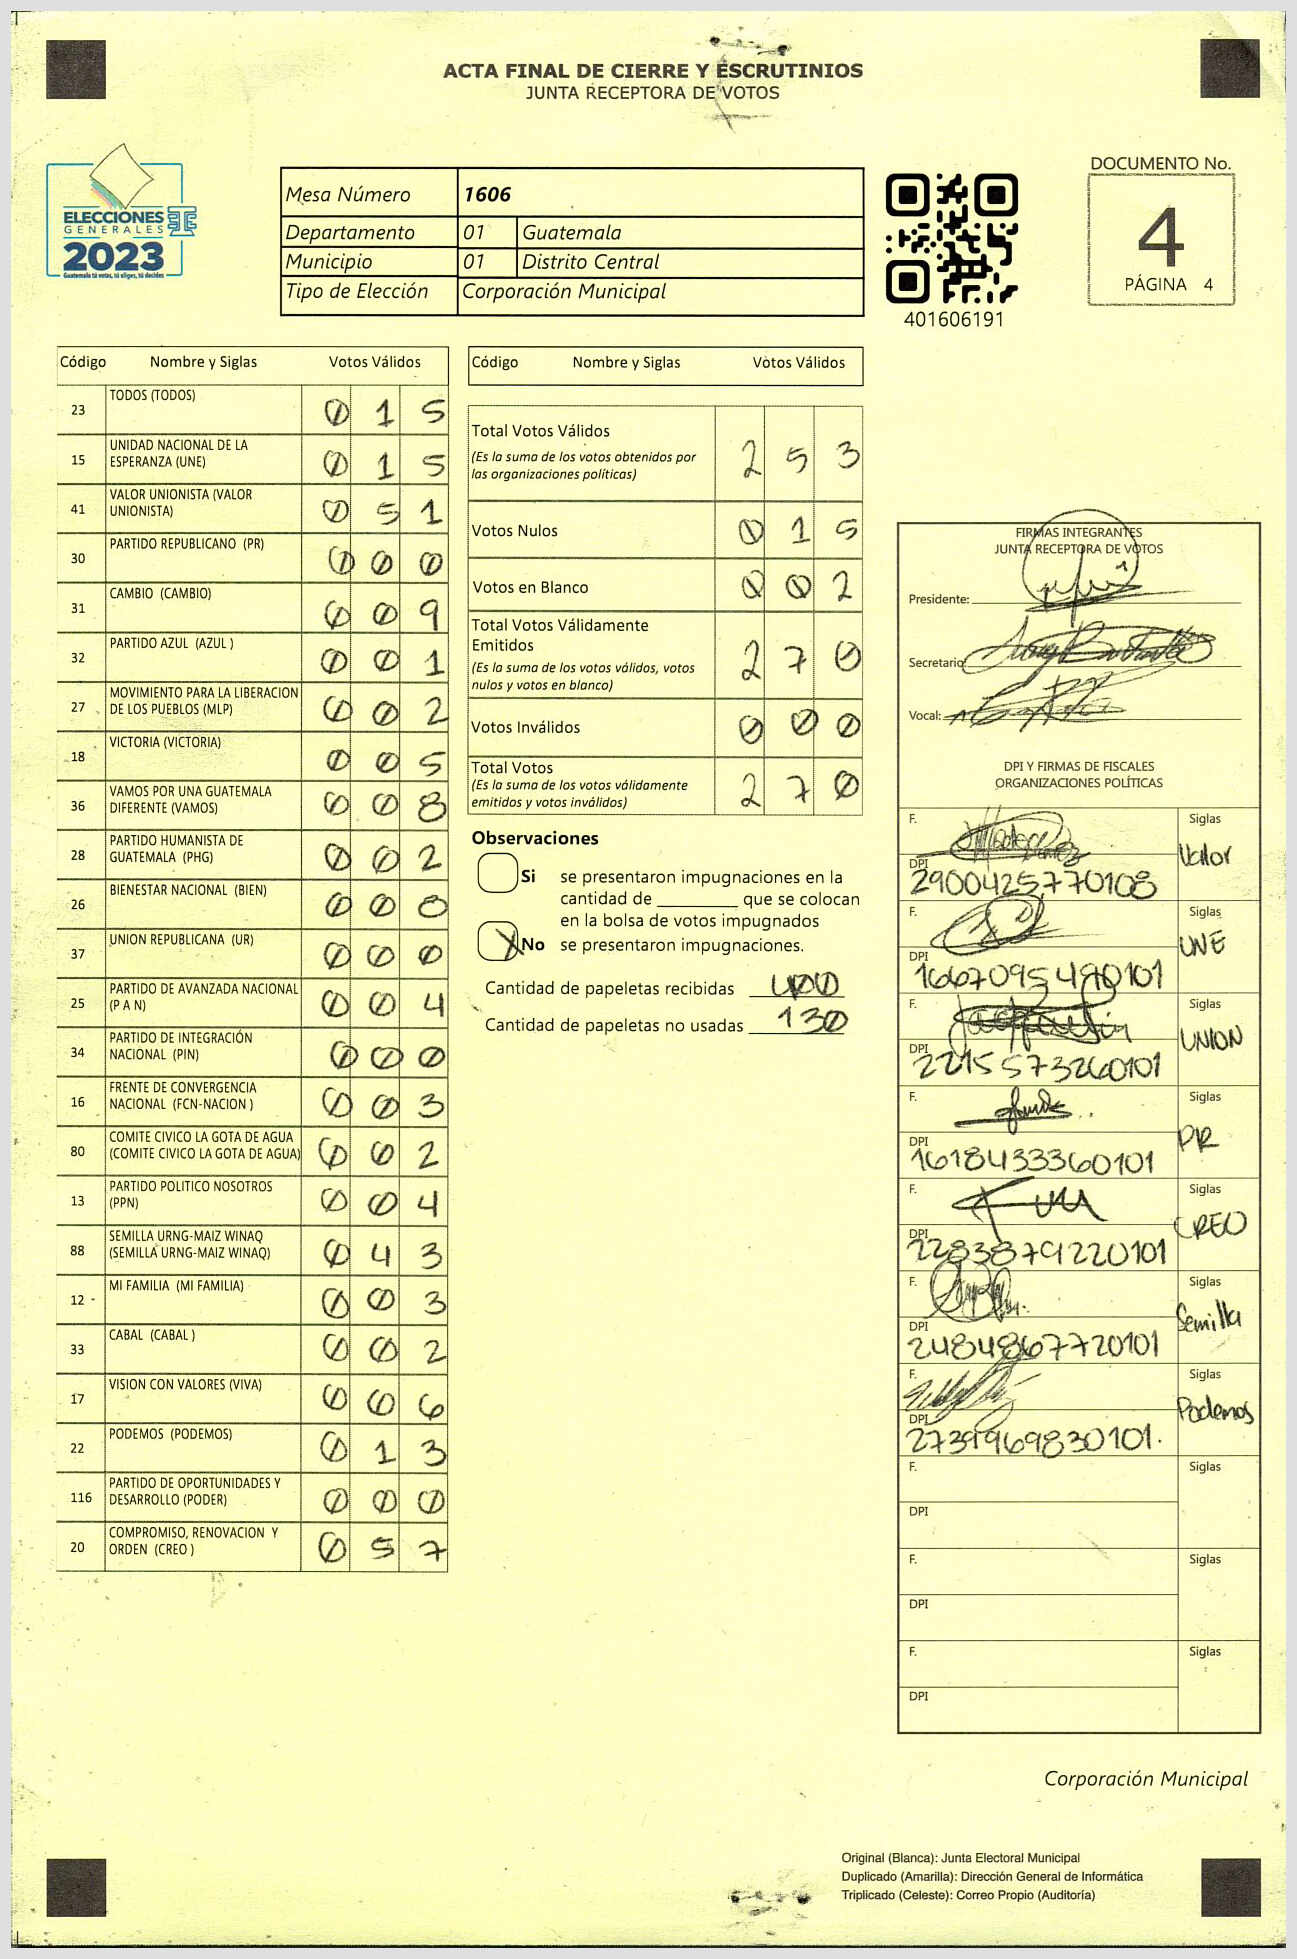 ACTA FINAL DE CIERRE Y ESCRUTINIOS
JUNTA RECEPTORA DE VOTOS
ELECCIONES
GENERALES
2023
Guatemala tú votas, tú eliges, tú decides
Mesa Número 1606
Departamento 01 Guatemala
Municipio 01 Distrito Central
Tipo de Elección Corporación Municipal
401606191
DOCUMENTO No.
4
PÁGINA 4
Código Nombre y Siglas Votos Válidos
23 TODOS (TODOS) 0 1 5
15 UNIDAD NACIONAL DE LA ESPERANZA (UNE) 0 1 5
41 VALOR UNIONISTA (VALOR UNIONISTA) 0 5 1
30 PARTIDO REPUBLICANO (PR) 0 0 0
31 CAMBIO (CAMBIO) 0 0 9
32 PARTIDO AZUL (AZUL ) 0 0 1
27 MOVIMIENTO PARA LA LIBERACION DE LOS PUEBLOS (MLP) 0 0 2
18 VICTORIA (VICTORIA) 0 0 5
36 VAMOS POR UNA GUATEMALA DIFERENTE (VAMOS) 0 0 8
28 PARTIDO HUMANISTA DE GUATEMALA (PHG) 0 0 2
26 BIENESTAR NACIONAL (BIEN) 0 0 8
37 UNION REPUBLICANA (UR) 0 0 0
25 PARTIDO DE AVANZADA NACIONAL (P A N) 0 0 4
34 PARTIDO DE INTEGRACIÓN NACIONAL (PIN) 0 0 0
16 FRENTE DE CONVERGENCIA NACIONAL (FCN-NACION ) 0 0 3
80 COMITE CIVICO LA GOTA DE AGUA (COMITE CIVICO LA GOTA DE AGUA) 0 0 2
13 PARTIDO POLITICO NOSOTROS (PPN) 0 0 4
88 SEMILLA URNG-MAIZ WINAQ (SEMILLA URNG-MAIZ WINAQ) 0 4 3
12 MI FAMILIA (MI FAMILIA) 0 0 3
33 CABAL (CABAL ) 0 0 2
17 VISION CON VALORES (VIVA) 0 0 6
22 PODEMOS (PODEMOS) 0 1 3
116 PARTIDO DE OPORTUNIDADES Y DESARROLLO (PODER) 0 0 0
20 COMPROMISO, RENOVACION Y ORDEN (CREO ) 0 5 7
Código Nombre y Siglas Votos Válidos
Total Votos Válidos 2 5 3
(Es la suma de los votos obtenidos por
las organizaciones políticas)
Votos Nulos 0 1 5
Votos en Blanco 0 0 2
Total Votos Válidamente
Emitidos 2 7 0
(Es la suma de los votos válidos, votos
nulos y votos en blanco)
Votos Inválidos 0 0 0
Total Votos 2 7 0
(Es la suma de los votos válidamente
emitidos y votos inválidos)
Observaciones
Si se presentaron impugnaciones en la
cantidad de ________ que se colocan
en la bolsa de votos impugnados
X No se presentaron impugnaciones.
Cantidad de papeletas recibidas 400
Cantidad de papeletas no usadas 130
FIRMAS INTEGRANTES
JUNTA RECEPTORA DE VOTOS
Presidente:
Secretario:
Vocal:
DPI Y FIRMAS DE FISCALES
ORGANIZACIONES POLÍTICAS
F. Siglas
Valor
DPI
2900425770108
F. Siglas
UNE
DPI
1667095490101
F. Siglas
UNION
DPI
2215573260101
F. Siglas
PR
DPI
1618433360101
F. Siglas
CREO
DPI
2283879220101
F. Siglas
Semilla
DPI
2484867720101
F. Siglas
Podemos
DPI
2739969830101.
F. Siglas
DPI
F. Siglas
DPI
F. Siglas
DPI
Corporación Municipal
Original (Blanca): Junta Electoral Municipal
Duplicado (Amarilla): Dirección General de Informática
Triplicado (Celeste): Correo Propio (Auditoría)